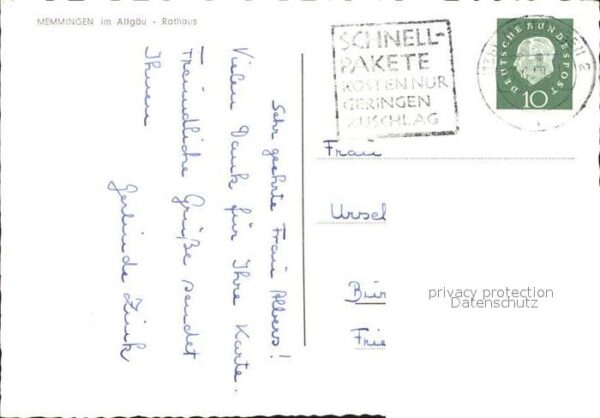 MEMMINGEN im Allgäu - Rathaus
SCHNELL-
PAKETE
KOSTEN NUR
GERINGEN
ZUSCHLAG
DEUTSCHE BUNDESPOST
10
Sehr geehrte Frau Albers!
Vielen Dank für Ihre Karte.
Freundliche Grüße sendet
Ihnen
Gerlinde Zink
Frau
Ursel
Bür
Frie
privacy protection
Datenschutz